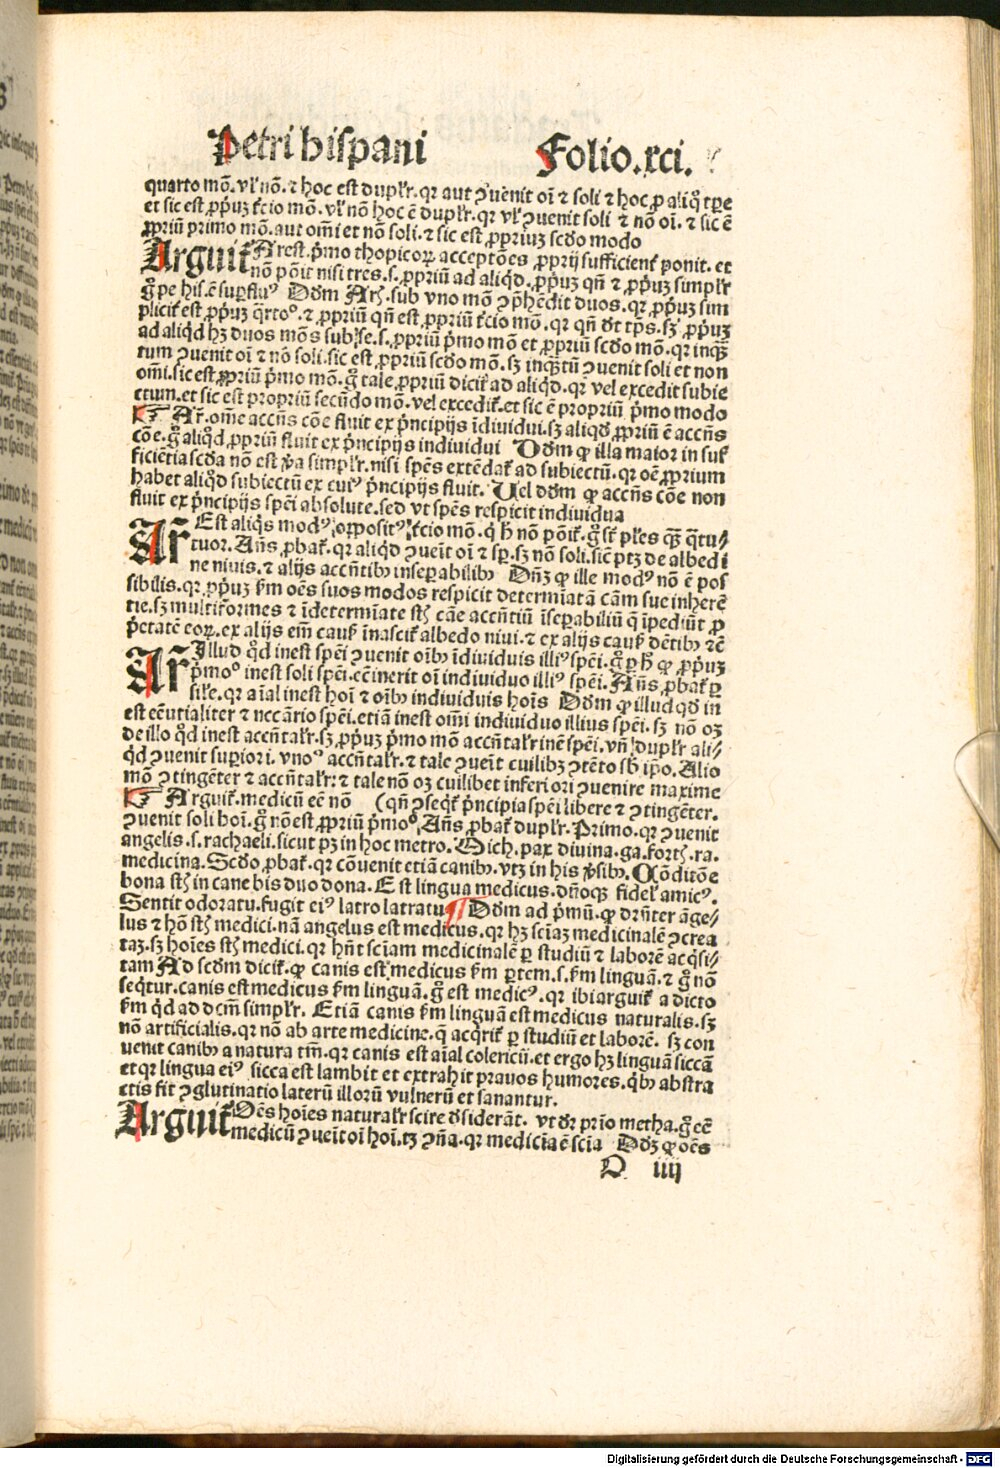 Petri hispani Folio.xci.
quarto mō.vl' nō.⁊ hoc est duplr̄.qr aut ꝯuenit oī ⁊ soli ⁊ hoc ꝓ aliq̄
et sic est ꝓpͥuȝ tͨio mō.vl' nō hoc ē duplr̄.qr vl' ꝯuenit soli ⁊ nō oī.⁊ sic ē
ꝓpriū primo mō.aut om̄i et nō soli.⁊ sic est ꝓpriuȝ scd̄o modo
Arguit̄ A rest.pͥmo thopicoꝝ acceptōes ꝓprij sufficient̄ ponit.et
nō pōit nisi tres.s.ꝓpriū ad aliqd̄.ꝓpͥuȝ qn̄ ⁊ ꝓpͥuȝ simplr̄
 Dd̄m Arͥ.sub vno mō ꝯpͥhēdit duos.qr ꝓpͥuȝ sim
plicit̄ est ꝓpͥuȝ q̄rto.⁊ ꝓpriū qn̄ est ꝓpriū tͨio mō.qr qn̄ dt̄ tp̄s.sȝ ꝓpͥuȝ
ad aliqd̄ hȝ duos mōs sub se.s.ꝓpriū pͥmo mō et ꝓpriū scd̄o mō.qr inqȝ̄
tum ꝯuenit oī ⁊ nō soli.sic est ꝓpriū scd̄o mō.sȝ inqȝ̄tū ꝯuenit soli et non
om̄i.sic est ꝓpriū pͥmo mō.gͦ tale ꝓpriū dicit̄ ad aliqd̄.qr vel excedit subie
ctum.et sic est propriū secūdo mō.vel excedit̄.et sic ē propriū pͥmo modo
☞ Ar̄.om̄e accn̄s cōe fluit ex pͥncipijs īdiuidui.sȝ aliqd̄ ꝓpriū ē accn̄s
cōe.gͦ aliqd̄ ꝓpriū fluit ex pͥncipijs indiuidui Dd̄m ꝙ illa maior in suf
ficiētia scd̄a nō est pͥa simplr̄.nisi spēs extēdat̄ ad subiectū.qr oē ꝓprium
habet aliqd̄ subiectū ex cuiꝰ pͥncipijs fluit. Uel dd̄m ꝙ accn̄s cōe non
fluit ex pͥncipijs spēi absolute.sed vt spēs respicit indiuidua
Ar̄ Est aliqͥs modꝰ oppositꝰ tͨio mō.q̄ h̄ nō pōit̄.gͦ st̄ pl'es qȝ̄ q̄tu⸗
tuor.An̄s ꝓbat̄.qr aliqd̄ ꝯuēit oī ⁊ sꝑ.sȝ nō soli.sic ptȝ de albedi
ne niuis.⁊ alijs accn̄tibꝰ insepabilibꝰ Dn̄ȝ ꝙ ille modꝰ nō ē pos
sibilis.qr ꝓpͥuȝ fm̄ oēs suos modos respicit determīatā cām sue inherē
tie.sȝ multiformes ⁊ īdetermīate st̄ cāe accn̄tiū īsepabiliū q̄ īpediūt ꝓ
pͥetatē eoꝝ.ex alijs em̄ causͥ īnascit̄ albedo niui.⁊ ex alijs causͥ dētibꝰ ⁊c̄
Ar̄ Illud qd̄ inest spēi ꝯuenit oībꝰ īdiuiduis illiꝰ spēi.gͦ ꝑ h̄ ꝙ ꝓpͥuȝ
pͥmoͦ inest soli spēi.eē inerit oī indiuiduo illiꝰ spēi.An̄s ꝓbat̄ ꝑ
sil'e.qr aīal inest hoī ⁊ oībꝰ indiuiduis hoīs Dd̄m ꝙ illud qd̄ in
est eēntialiter ⁊ necc̄ario spēi.etiā inest om̄i indiuiduo illius spēi.sȝ nō oȝ
de illo qd̄ inest accn̄talr̄.sȝ ꝓpͥuȝ pͥmo mō accn̄talr̄ inē spēi.vn̄ duplr̄ ali⸗
qd̄ ꝯuenit supiori.vnoͦ accn̄talr̄.⁊ tale ꝯuēit cuilibȝ ꝯtēto sb̄ ip̄o.Alio
mō ꝯtingēter ⁊ accn̄talr̄:⁊ tale nō oȝ cuilibet inferiori ꝯuenire maxime
☞ Arguit̄.medicū eē nō (qn̄ ꝯseqt̄ pͥncipia spēi libere ⁊ ꝯtingēter.
ꝯuenit soli hoī.gͦ nō est ꝓpriū pͥmoͦ.An̄s ꝓbat̄ duplr̄.Primo.qr ꝯuenit
angelis.s.rachaeli.sicut pȝ in hoc metro.Mich.pax diuina.ga.fort̄.ra.
medicina.Scd̄o ꝓbat̄.qr cōuenit etiā canibꝰ.vtȝ in his v̄sibꝰ. Cōditōe
bona st̄ in cane bis duo dona.Est lingua medicus.dn̄oqȝ fidel' amicꝰ.
Sentit odoratu.fugit eiꝰ latro latratu ¶ Dd̄m ad pͥmū.ꝙ drn̄ter āge⸗
lus ⁊ hō st̄ medici.nā angelus est medicus.qr hȝ sciaȝ medicinalē ꝯcrea
taȝ.sȝ hoīes st̄ medici.qr hn̄t sciam medicinalē ꝑ studiū ⁊ laborē acqͥsi⸗
tam Ad scd̄m dicit̄.ꝙ canis est medicus fm̄ ꝑtem.s.fm̄ linguā.⁊ gͦ nō
seqͥtur.canis est medicus fm̄ linguā.gͦ est medicꝰ.qr ibi arguit̄ a dicto
fm̄ qd̄ ad dcm̄ simplr̄. Etiā canis fm̄ linguā est medicus naturalis.sȝ
nō artificialis.qr nō ab arte medicine.q̄ acqͥrit̄ ꝑ studiū et laborē. sȝ con
uenit canibꝰ a natura tm̄.qr canis est aīal colericū.et ergo hȝ linguā siccā
et qr lingua eiꝰ sicca est lambit et extrahit prauos humores.qͥbꝰ abstra
ctis fit ꝯglutinatio laterū illorū vulnerū et sanantur.
Arguit̄ Oēs hoīes naturalr̄ scire d̄siderāt. vt dr̄ prīo metha.gͦ eē
medicū ꝯuēit oī hoī.tȝ ꝯn̄a.qr medicīa ē scīa Dd̄ȝ ꝙ oēs
O iiij
Digitalisierung gefördert durch die Deutsche Forschungsgemeinschaft - DFG